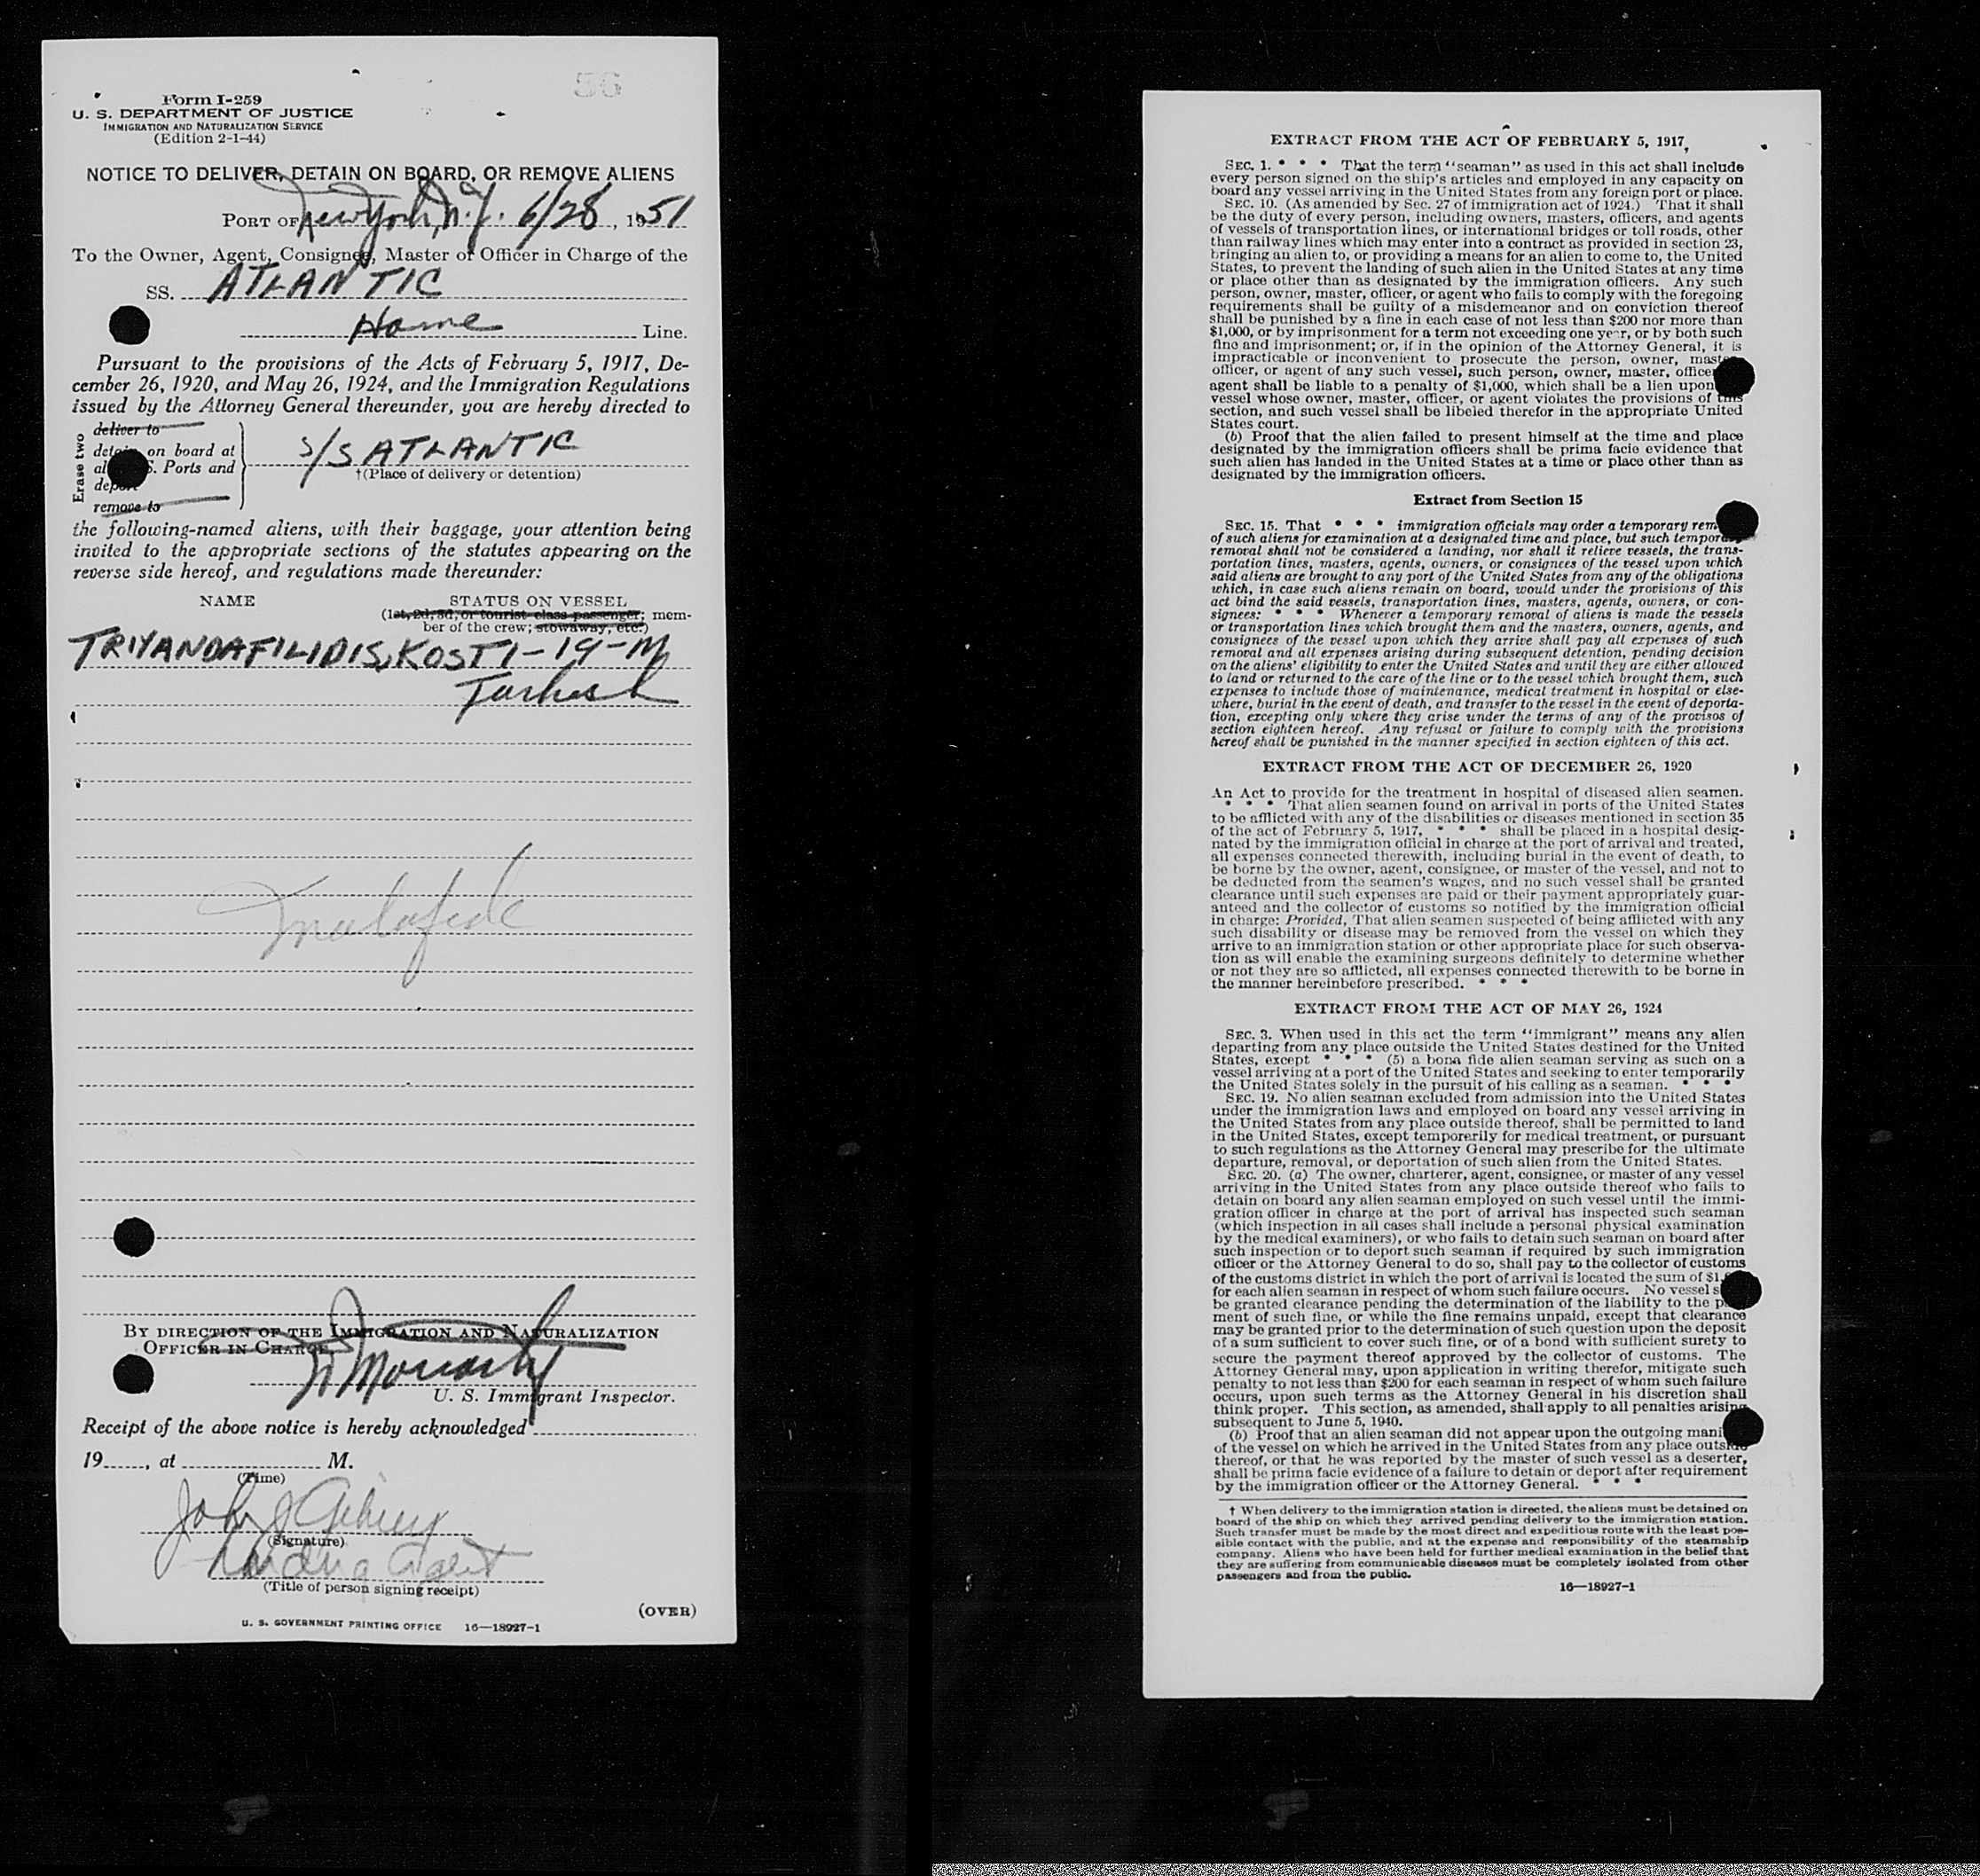 56
Form I-259
U. S. DEPARTMENT OF JUSTICE
IMMIGRATION AND NATURALIZATION SERVICE
(Edition 2-1-44)
NOTICE TO DELIVER, DETAIN ON BOARD, OR REMOVE ALIENS
PORT OF New York, N.Y. 6/28, 1951
To the Owner, Agent, Consignee, Master or Officer in Charge of the
SS. ATLANTIC
Home Line.
Pursuant to the provisions of the Acts of February 5, 1917, De-
cember 26, 1920, and May 26, 1924, and the Immigration Regulations
issued by the Attorney General thereunder, you are hereby directed to
Erase two
deliver to
on board at
S. Ports and
remove to
S/S ATLANTIC
†(Place of delivery or detention)
the following-named aliens, with their baggage, your attention being
invited to the appropriate sections of the statutes appearing on the
reverse side hereof, and regulations made thereunder:
NAME STATUS ON VESSEL
(1st, 2d, 3d, or tourist class passenger; mem-
ber of the crew; stowaway, etc.)
TRIYANDAFILIDIS, KOSTI-19-M
Turkish
malafide
BY DIRECTION OF THE IMMIGRATION AND NATURALIZATION
OFFICER IN CHARGE
U. S. Immigrant Inspector.
Receipt of the above notice is hereby acknowledged
19......, at M.
(Time)
John J
(Signature)
Landing Agent
(Title of person signing receipt)
(OVER)
U. S. GOVERNMENT PRINTING OFFICE 16—18927-1
EXTRACT FROM THE ACT OF FEBRUARY 5, 1917
SEC. 1. * * * That the term "seaman" as used in this act shall include
every person signed on the ship's articles and employed in any capacity on
board any vessel arriving in the United States from any foreign port or place.
SEC. 10. (As amended by Sec. 27 of immigration act of 1924.) That it shall
be the duty of every person, including owners, masters, officers, and agents
of vessels of transportation lines, or international bridges or toll roads, other
than railway lines which may enter into a contract as provided in section 23,
bringing an alien to, or providing a means for an alien to come to, the United
States, to prevent the landing of such alien in the United States at any time
or place other than as designated by the immigration officers. Any such
person, owner, master, officer, or agent who fails to comply with the foregoing
requirements shall be guilty of a misdemeanor and on conviction thereof
shall be punished by a fine in each case of not less than $200 nor more than
$1,000, or by imprisonment for a term not exceeding one year, or by both such
fine and imprisonment; or, if in the opinion of the Attorney General, it is
impracticable or inconvenient to prosecute the person, owner, master,
officer, or agent of any such vessel, such person, owner, master, officer
agent shall be liable to a penalty of $1,000, which shall be a lien upon
vessel whose owner, master, officer, or agent violates the provisions of this
section, and such vessel shall be libeled therefor in the appropriate United
States court.
(b) Proof that the alien failed to present himself at the time and place
designated by the immigration officers shall be prima facie evidence that
such alien has landed in the United States at a time or place other than as
designated by the immigration officers.
Extract from Section 15
SEC. 15. That * * * immigration officials may order a temporary rem
of such aliens for examination at a designated time and place, but such temporary
removal shall not be considered a landing, nor shall it relieve vessels, the trans-
portation lines, masters, agents, owners, or consignees of the vessel upon which
said aliens are brought to any port of the United States from any of the obligations
which, in case such aliens remain on board, would under the provisions of this
act bind the said vessels, transportation lines, masters, agents, owners, or con-
signees: * * * Whenever a temporary removal of aliens is made the vessels
or transportation lines which brought them and the masters, owners, agents, and
consignees of the vessel upon which they arrive shall pay all expenses of such
removal and all expenses arising during subsequent detention, pending decision
on the aliens' eligibility to enter the United States and until they are either allowed
to land or returned to the care of the line or to the vessel which brought them, such
expenses to include those of maintenance, medical treatment in hospital or else-
where, burial in the event of death, and transfer to the vessel in the event of deporta-
tion, excepting only where they arise under the terms of any of the provisos of
section eighteen hereof. Any refusal or failure to comply with the provisions
hereof shall be punished in the manner specified in section eighteen of this act.
EXTRACT FROM THE ACT OF DECEMBER 26, 1920
An Act to provide for the treatment in hospital of diseased alien seamen.
* * * That alien seamen found on arrival in ports of the United States
to be afflicted with any of the disabilities or diseases mentioned in section 35
of the act of February 5, 1917, * * * shall be placed in a hospital desig-
nated by the immigration official in charge at the port of arrival and treated,
all expenses connected therewith, including burial in the event of death, to
be borne by the owner, agent, consignee, or master of the vessel, and not to
be deducted from the seamen's wages, and no such vessel shall be granted
clearance until such expenses are paid or their payment appropriately guar-
anteed and the collector of customs so notified by the immigration official
in charge: Provided, That alien seamen suspected of being afflicted with any
such disability or disease may be removed from the vessel on which they
arrive to an immigration station or other appropriate place for such observa-
tion as will enable the examining surgeons definitely to determine whether
or not they are so afflicted, all expenses connected therewith to be borne in
the manner hereinbefore prescribed. * * *
EXTRACT FROM THE ACT OF MAY 26, 1924
SEC. 3. When used in this act the term "immigrant" means any alien
departing from any place outside the United States destined for the United
States, except * * * (5) a bona fide alien seaman serving as such on a
vessel arriving at a port of the United States and seeking to enter temporarily
the United States solely in the pursuit of his calling as a seaman. * * *
SEC. 19. No alien seaman excluded from admission into the United States
under the immigration laws and employed on board any vessel arriving in
the United States from any place outside thereof, shall be permitted to land
in the United States, except temporarily for medical treatment, or pursuant
to such regulations as the Attorney General may prescribe for the ultimate
departure, removal, or deportation of such alien from the United States.
SEC. 20. (a) The owner, charterer, agent, consignee, or master of any vessel
arriving in the United States from any place outside thereof who fails to
detain on board any alien seaman employed on such vessel until the immi-
gration officer in charge at the port of arrival has inspected such seaman
(which inspection in all cases shall include a personal physical examination
by the medical examiners), or who fails to detain such seaman on board after
such inspection or to deport such seaman if required by such immigration
officer or the Attorney General to do so, shall pay to the collector of customs
of the customs district in which the port of arrival is located the sum of
for each alien seaman in respect of whom such failure occurs. No vessel
be granted clearance pending the determination of the liability to the
ment of such fine, or while the fine remains unpaid, except that clearance
may be granted prior to the determination of such question upon the deposit
of a sum sufficient to cover such fine, or of a bond with sufficient surety to
secure the payment thereof approved by the collector of customs. The
Attorney General may, upon application in writing therefor, mitigate such
penalty to not less than $200 for each seaman in respect of whom such failure
occurs, upon such terms as the Attorney General in his discretion shall
think proper. This section, as amended, shall apply to all penalties arising
subsequent to June 5, 1940.
(b) Proof that an alien seaman did not appear upon the outgoing mani
of the vessel on which he arrived in the United States from any place outside
thereof, or that he was reported by the master of such vessel as a deserter,
shall be prima facie evidence of a failure to detain or deport after requirement
by the immigration officer or the Attorney General. * * *
† When delivery to the immigration station is directed, the aliens must be detained on
board of the ship on which they arrived pending delivery to the immigration station.
Such transfer must be made by the most direct and expeditious route with the least pos-
sible contact with the public, and at the expense and responsibility of the steamship
company. Aliens who have been held for further medical examination in the belief that
they are suffering from communicable diseases must be completely isolated from other
passengers and from the public.
16—18927-1